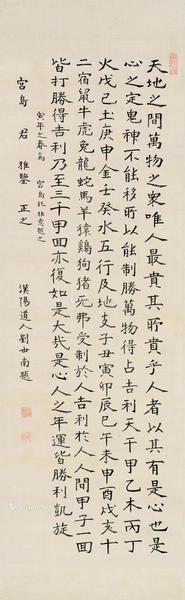 天地之間萬物之衆唯人最貴其所貴乎人者以其有是心也是
心之定鬼神不能移所以能制勝萬物得占吉利天干甲乙木丙丁
火戊己土庚申金壬癸水五行及地支子丑寅卯辰巳午未申酉戌亥十
二宿鼠牛虎兔龍蛇馬羊猿鷄狗猪死弗受制於人吉利於人人間甲子一回
皆打勝得吉利乃至三十甲回亦復如是大哉是心人之年運皆勝利凱旋
寅年之春為 宮島 雅意題之
宮島 君 雅鑒 正之
漢陽道人劉世南題